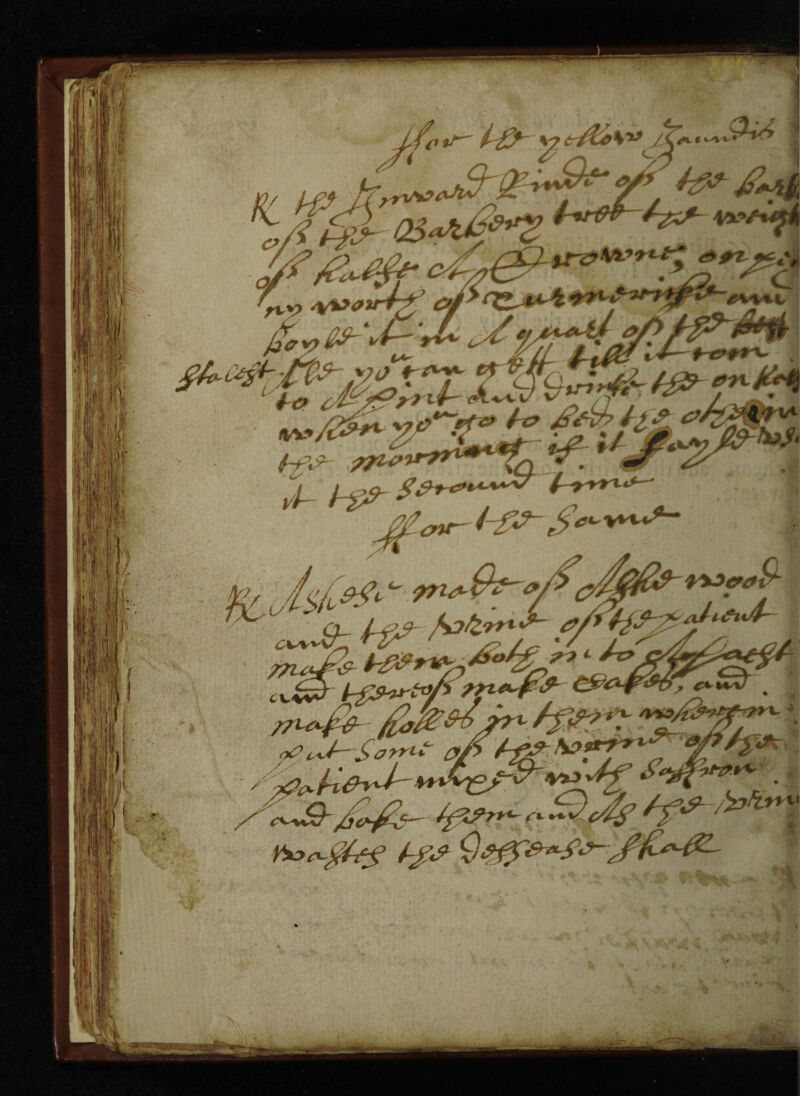 ffor the yellow Jaundis
R the Inward Rinde off the bark
off the Barbery tree the weigh
off halfe A Crowne, on pe
ny worth off Turmericke and
boyle it in A quart off the best
stalest Ale you can gett till it com
to A pint and drinke the on halfe
when you go to bed the other in
the morning if it fayle vse
it the Secound time
ffor the Same
R Ashese made off Ashe wood
and the Vrine off the patient
make them both in to A past
and thereoff make Cakes, and
make holles in them wherein
put Some off the Vrine off the
patient mixed with Saffron
and bake them and As the Vrin
wasteh the Dessease shall